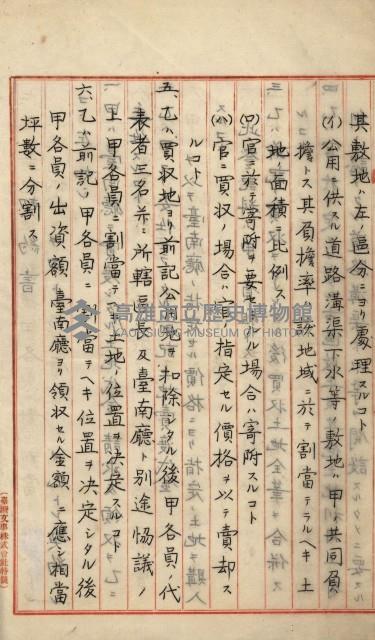 其敷地ハ左區分ニヨリ處理スルコト
(イ)公用ニ供スル道路溝渠下水等ノ敷地ハ甲ノ共同負
擔トス其負擔率ハ該地域ニ於テ割當テラルヘキ土
地面積ニ比例ス
(ロ)官ニ於テ寄附ヲ要セサル場合ハ寄附スルコト
(ハ)官ニ買収ノ場合ハ官ノ指定セル價格ヲ以テ賣却ス
ルコト
五、乙ハ買収地ヨリ前記公用地ヲ扣除シタル後甲各員ノ代
表者三名并ニ所轄區長及臺南廳ト別途恊議ノ
上甲各員ニ割當テノ土地ノ位置ヲ決定スルコト
六、乙ハ前記ノ甲各員ニ割當テヘキ位置ヲ決定シタル後
甲各員ノ出資額臺南廳ヨリ領収セル金額ニ應シ相當
坪數ニ分割ス
高雄市立歷史博物館
KAOHSIUNG MUSEUM OF HISTORY